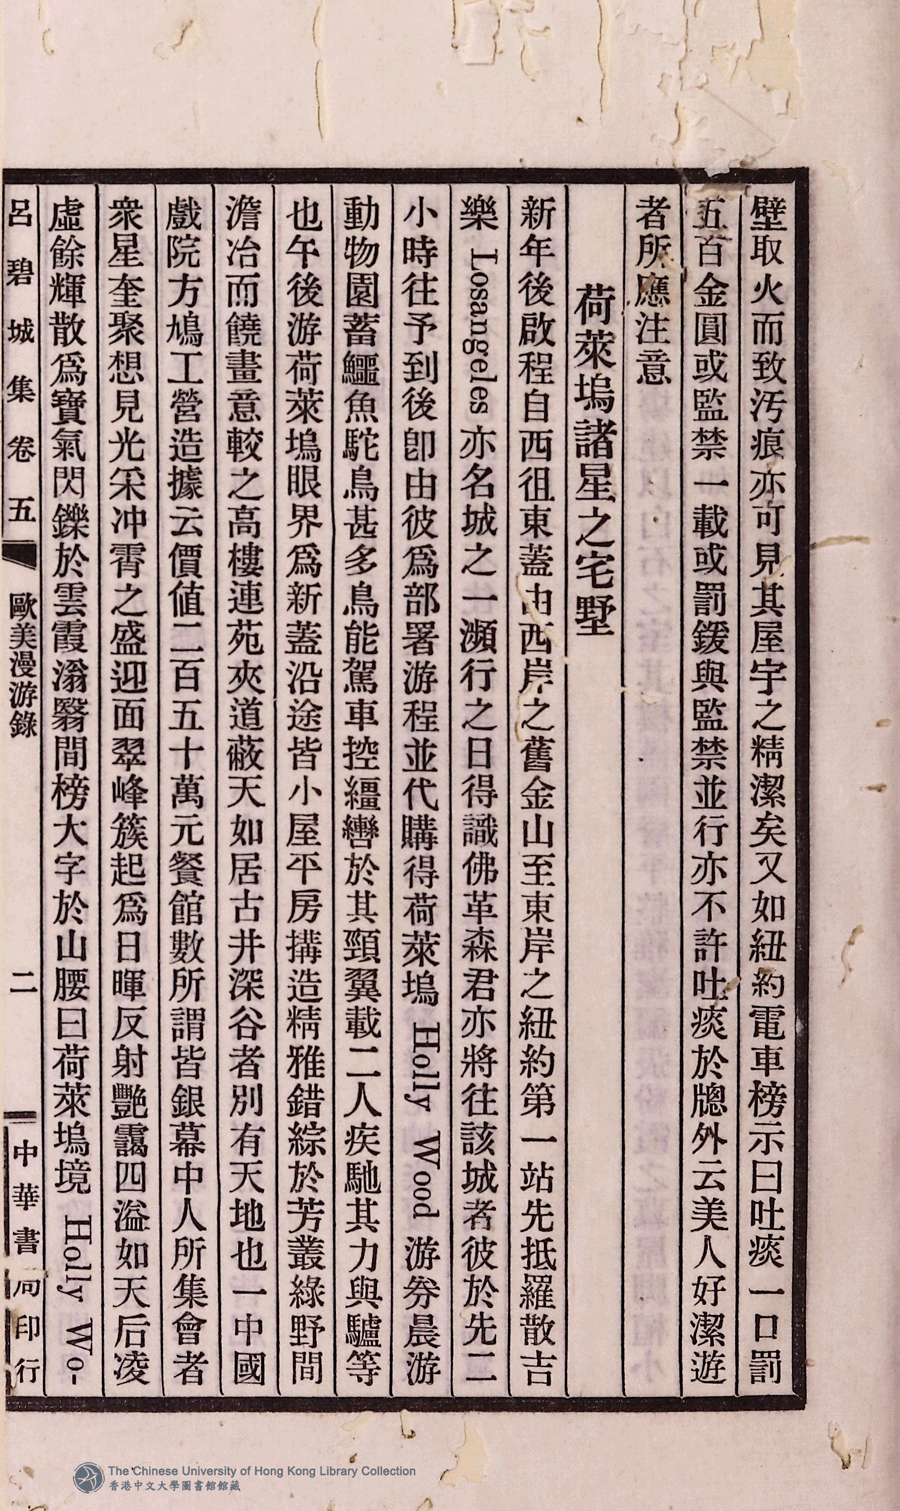 壁取火而致汚痕亦可見其屋宇之精潔矣又如紐約電車榜示曰吐痰一口罰
五百金圓或監禁一載或罰鍰與監禁並行亦不許吐痰於牕外云美人好潔遊
者所應注意
荷萊塢諸星之宅墅
新年後啟程自西徂東蓋由西岸之舊金山至東岸之紐約第一站先抵羅散吉
樂 Losangeles 亦名城之一瀕行之日得識佛革森君亦將往該城者彼於先二
小時往予到後卽由彼爲部署游程並代購得荷萊塢 Holly Wood 游券晨游
動物園蓄鱷魚駝鳥甚多鳥能駕車控繮轡於其頸翼載二人疾馳其力與驢等
也午後游荷萊塢眼界爲新蓋沿途皆小屋平房搆造精雅錯綜於芳叢綠野間
澹冶而饒畫意較之高樓連苑夾道蔽天如居古井深谷者別有天地也一中國
戲院方鳩工營造據云價値二百五十萬元餐館數所謂皆銀幕中人所集會者
衆星奎聚想見光采冲霄之盛迎面翠峰簇起爲日暉反射艷靄四溢如天后凌
虛餘輝散爲寶氣閃鑠於雲霞滃翳間榜大字於山腰曰荷萊塢境 Holly Wo-
呂碧城集卷五 歐美漫游錄 二 中華書局印行
The Chinese University of Hong Kong Library Collection
香港中文大學圖書館館藏